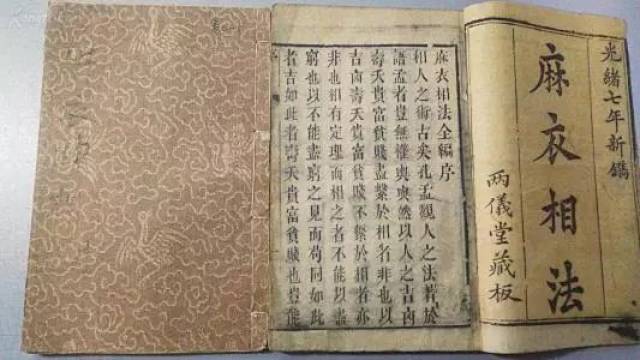 光緒七年新鐫
麻衣相法
两儀堂藏板
麻衣相法全編序
相人之術古矣孔孟觀人之法若於
語孟者豈無權然以人之吉凶
壽夭貴富貧賤盡繫於相者非也以
吉凶壽夭貴富貧賤不繫於相者亦
非也相有定理而相之者不能以盡
窮也以不能盡窮之見而苟同如此
者吉如此者壽夭貴富貧賤也豈能